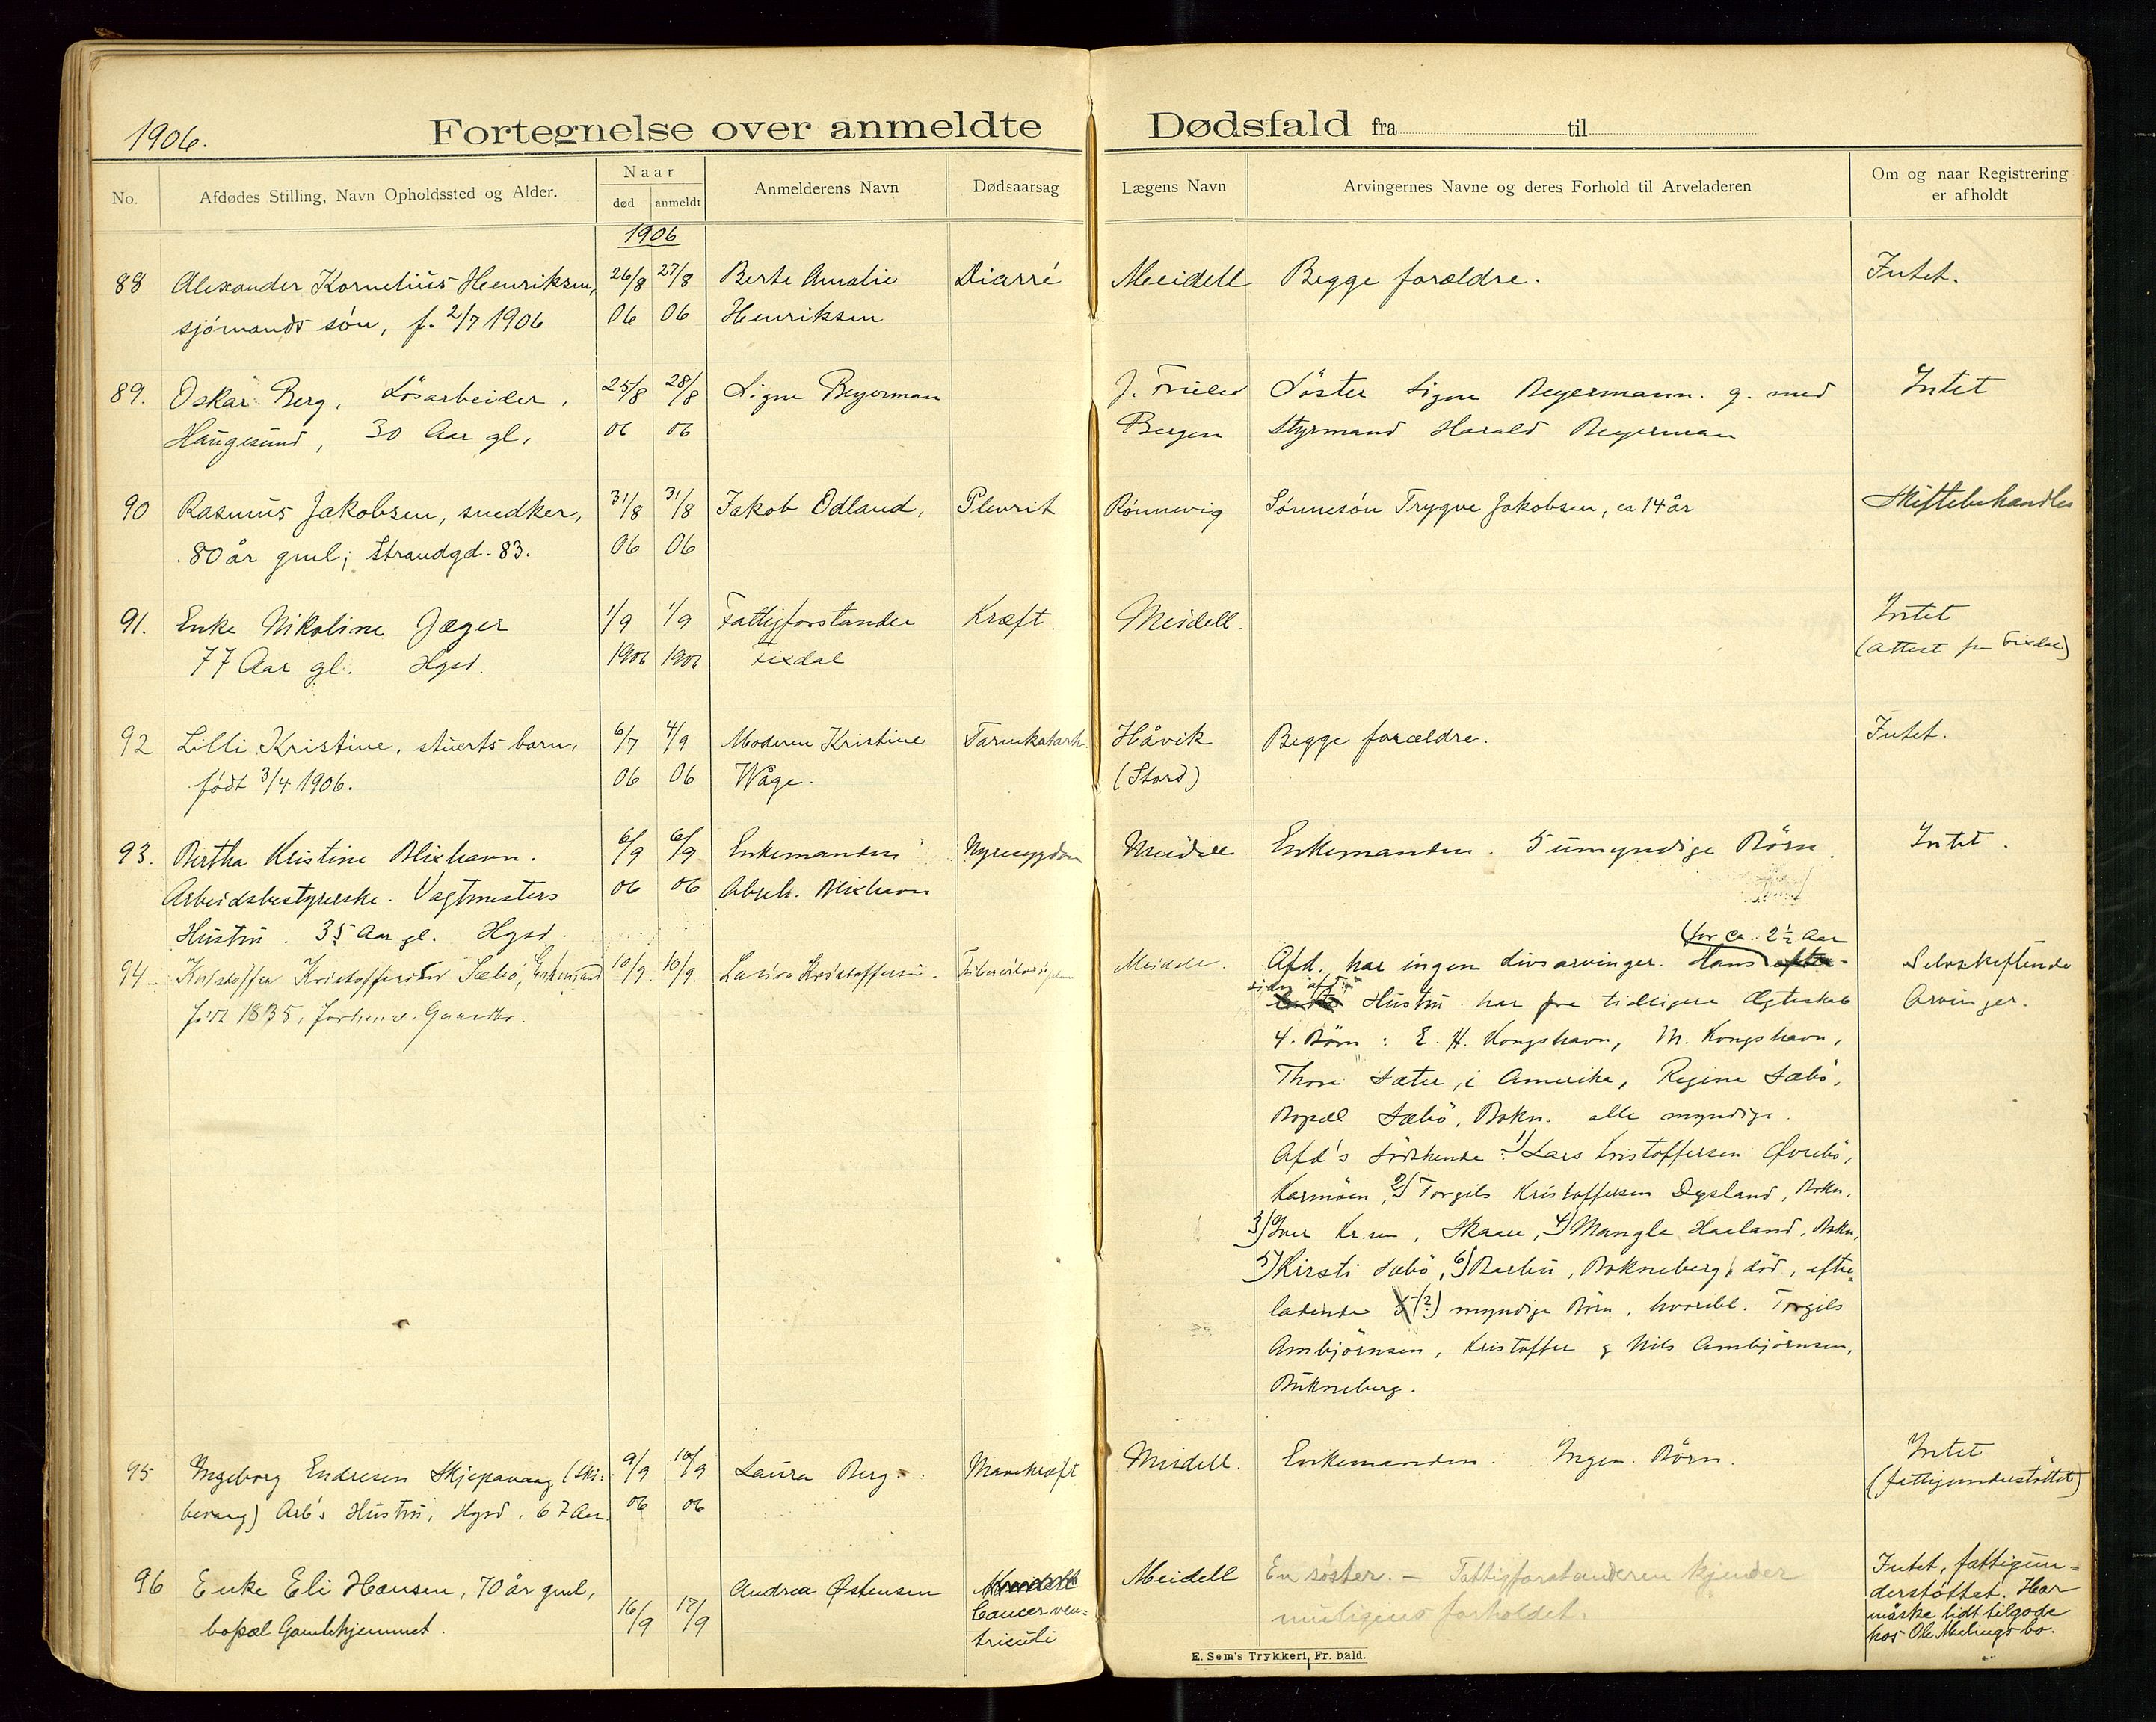 1906.
Fortegnelse over anmeldte Dødsfald fra til
No.
Afdødes Stilling, Navn Opholdssted og Alder.
Naar
død
anmeldt
Anmelderens Navn
Dødsaarsag
Lægens Navn
Arvingernes Navne og deres Forhold til Arveladeren
Om og naar Registrering
er afholdt
1906
88 Alexander Kornelius Henriksen, 26/8 27/8 Berte Amalie Diarré Meidell Begge forældre. Intet.
sjömands sön, f. 2/7 1906 06 06 Henriksen
89. Oskar Berg, Lösarbeider, 25/8 28/8 Signe Beyerman J. Söster Signe Beyermann. g. med Intet
Haugesund, 30 Aar gl. 06 06 Bergen Styrmand Harald Beyerman
90 Rasmus Jakobsen, snedker, 31/8 31/8 Jakob Odland, Plevrit Rönnevig Sønnesön Trygve Jakobsen, ca 14 år Skiftebehandles
80 år gml; Strandgd. 83. 06 06
91. Enke Nikoline Jæger 1/9 1/9 Fattigforstander Kræft Meidell. Intet
77 Aar gl. Hgsd. 1906 1906 Fixdal (Attest fra Fixdal)
92 Lilli Kristine, stuerts barn, 6/7 4/9 Moderen Kristine Tarmkatarh. Håvik Begge forældre. Intet.
født 3/4 1906. 06 06 Wåge. (Stord)
93. Bertha Kristine Blixhavn. 6/9 6/9 Enkemanden Nyresygdom Meidell Enkemanden. 5 umyndige Börn. Intet.
Arbeidsbestyrerske. Vagtmesters 06 06 Abrh. Blixhavn
Hustru. 35 Aar gl. Hgsd.
(for ca. 2½ Aar
94 Kristoffer Kristoffersen Sæbö, Enkemand 10/9. 10/9. Kristoffersen. Meidell. Afd. har ingen livsarvinger. Hans Selvskiftende
siden afd.
født 1835, Gaardbr. Hustru har fra tidligere Ægteskab Arvinger.
4. Börn: E. H. Kongshavn, M. Kongshavn,
Thore Sæter, i Amerika, Regine Sæbö,
Bopæl Sæbö, Bokn. alle myndige.
Afd's Södskende: 1) Lars Kristoffersen Øvrebö,
Karmöen, 2) Torgils Kristoffersen Dysland, Bokn,
3) Iver Kr.sen, Skaar, 4) Mangla Haaland, Bokn,
5) Kirsti Sæbö, 6) Barbru, Bokneberg, död, efter-
ladende 5 (?) myndige Börn, hvoribl. Torgils
Ambjörnsen, Kristoffer & Nils Ambjörnsen,
Bukneberg.
95 Ingeborg Endresen Skjepavaag (Ski- 9/9 10/9 Laura Berg. Mavekræft Meidell. Enkemanden. Ingen Börn. Intet
bevaag) Arb's Hustru, Hgsd, 67 Aar. 06 06 (fattigunderstöttet)
96 Enke Eli Hansen, 70 år gml, 16/9 17/9 Andrea Østensen Meidell En søster. — Fattigforstanderen kjender Intet, fattigun-
bopæl Gamlehjemmet. Cancer ven- muligens forholdet. derstöttet. Har
triculi måske lidt tilgode
hos Ole Mælings bo.
E. Sem's Trykkeri, Fr. hald.